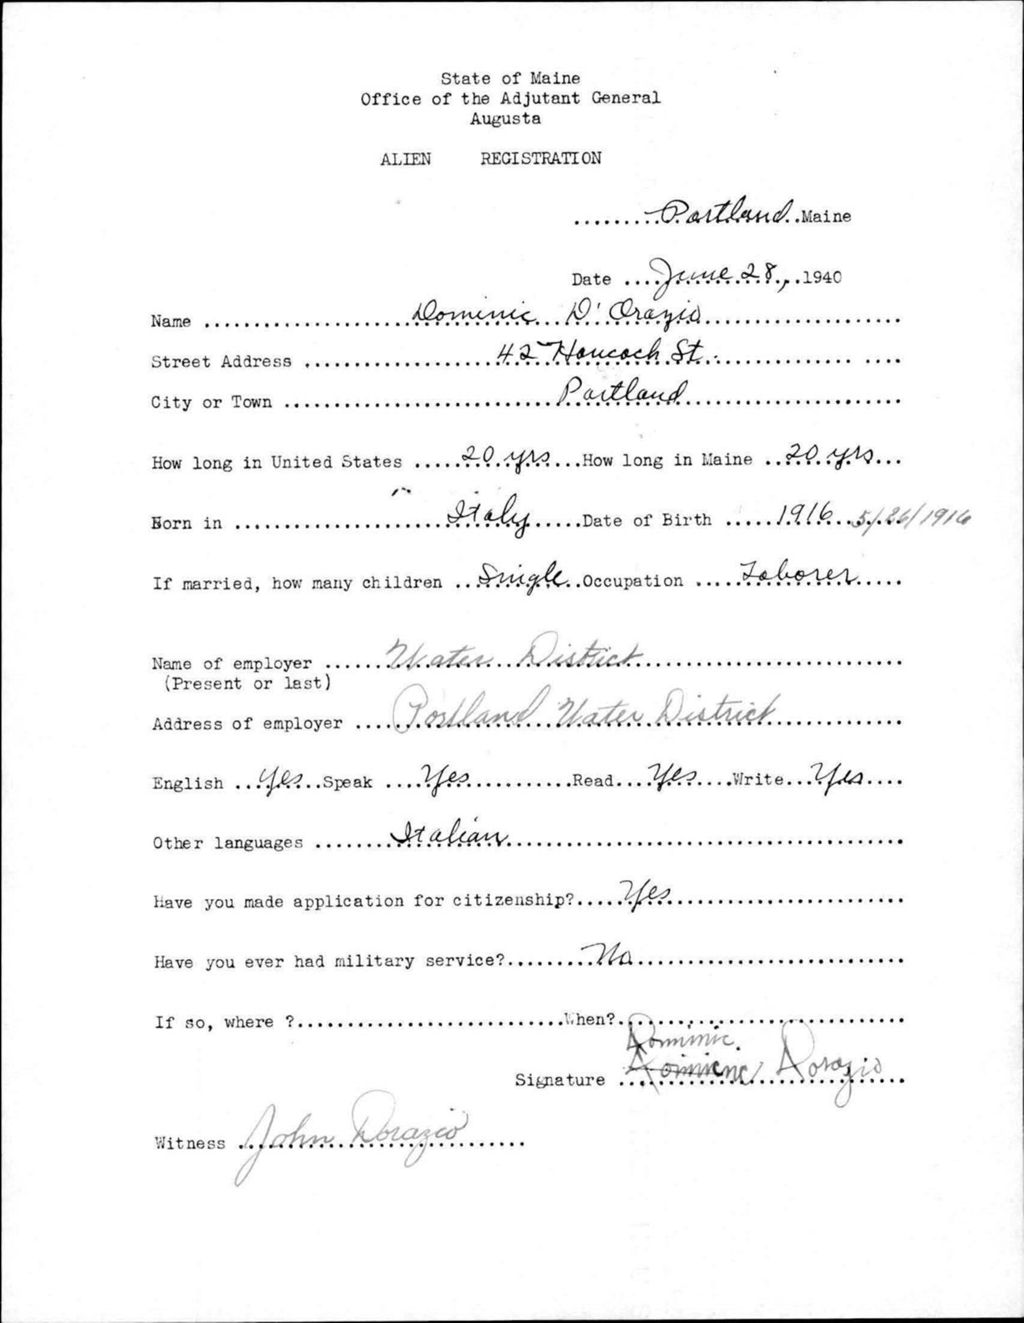 State of Maine
Office of the Adjutant General
Augusta
ALIEN REGISTRATION
........Portland..Maine
Date ....June 28,..1940
Name ....................Dominic D'Orazio....................
Street Address ..................42 Hancock St................. ....
City or Town ...........................Portland......................
How long in United States .....20 yrs...How long in Maine ..20 yrs...
Born in .....................Italy.....Date of Birth .....1916..5/26/1916
If married, how many children ..Single..Occupation .....Laborer.....
Name of employer ......Water District..........................
(Present or last)
Address of employer ....Portland Water District.............
English ..Yes..Speak ....Yes...........Read...Yes....Write...Yes....
Other languages ........Italian........................................
Have you made application for citizenship?.....Yes........................
Have you ever had military service?.........No..........................
If so, where ?...........................When?............................
Dominic
Signature ..........Dorazio....
Witness ..John Dorazio......